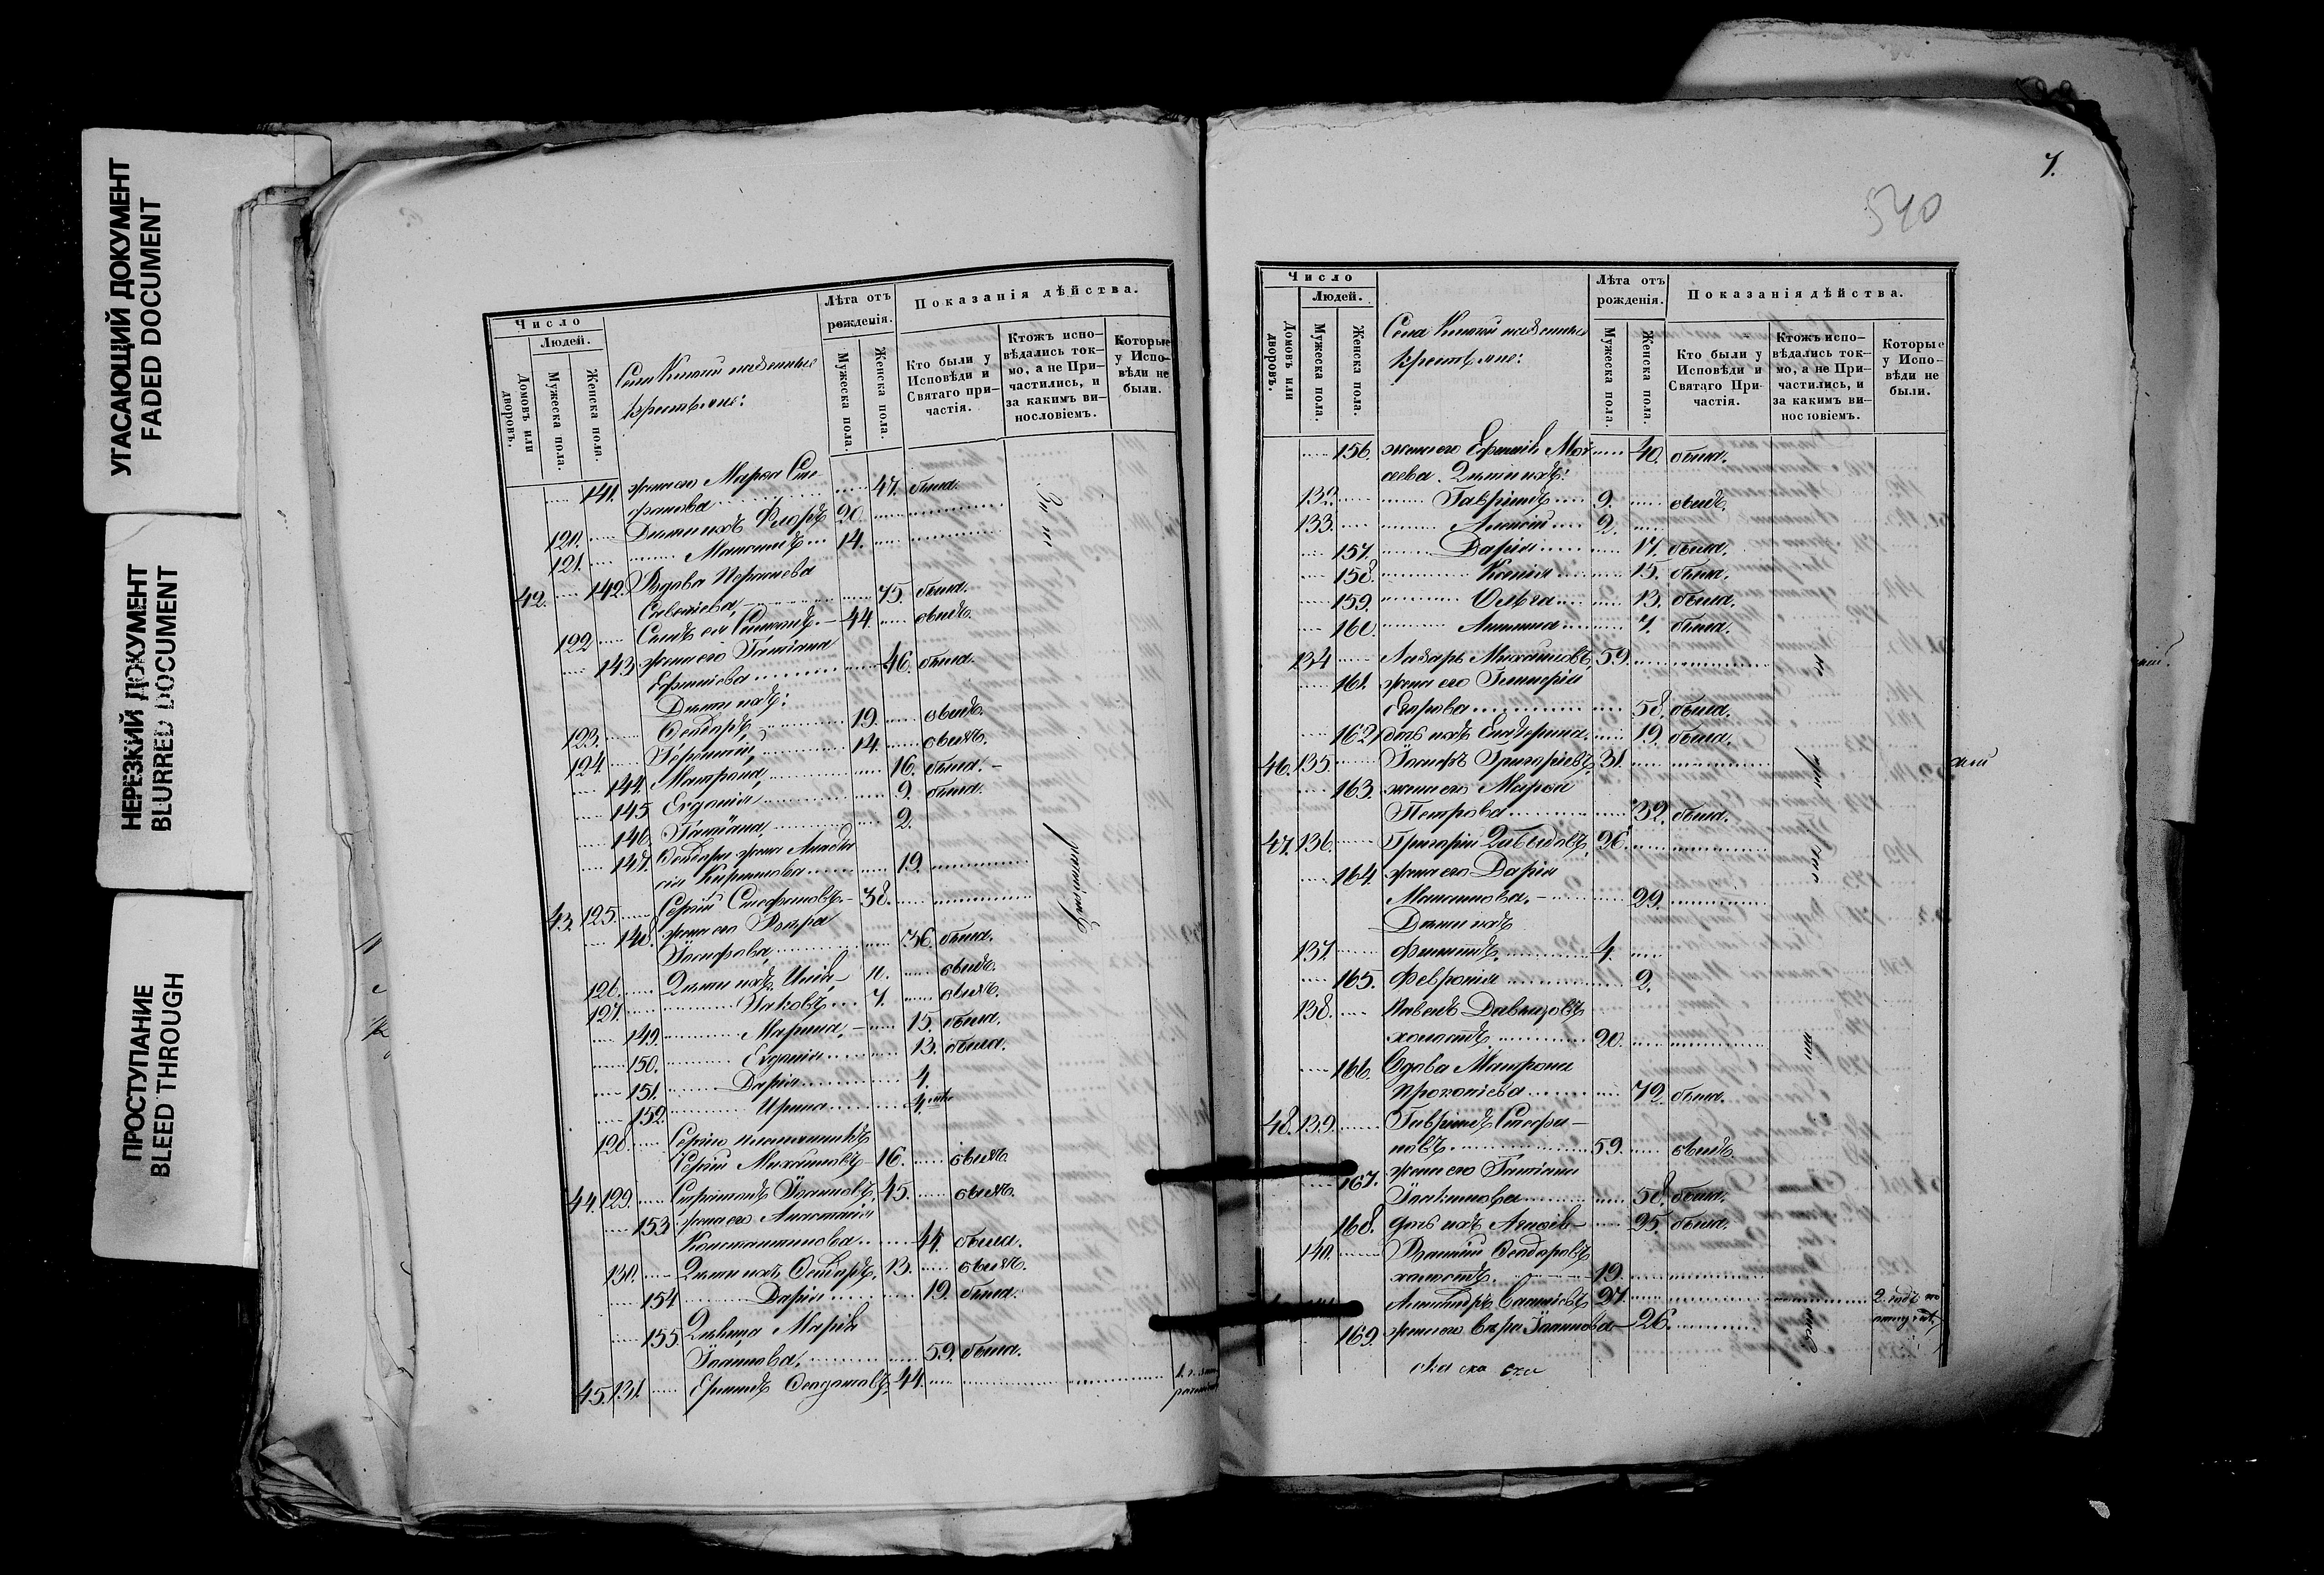 УГАСАЮЩИЙ ДОКУМЕНТ
FADED DOCUMENT
НЕРЕЗКИЙ ДОКУМЕНТ
BLURRED DOCUMENT
ПРОСТУПАНИЕ
BLEED THROUGH
Число
Людей.
Домовъ или дворовъ.
Мужеска пола.
Женска пола.
Лѣта отъ рожденія.
Мужеска пола.
Женска пола.
Показанія дѣйства.
Кто были у Исповѣди и Святаго причастія.
Ктожъ исповѣдались токмо, а не Причастились, и за какимъ винословіемъ.
Которые у Исповѣди не были.
крестьяне:
141. жена его Марѳа Сте-
фанова 47. была.
120. Дѣти ихъ Флоръ 20.
121. Максимъ 14.
42. 142. Вдова
75. была.
122 Сынъ ея 44. былъ.
143 жена его Татіана
Ефимова 46. была.
Дѣти ихъ:
123. Ѳеодоръ 19. былъ.
124. 14. былъ.
144. Матрона 16. была.
145 Евдокія 9. была.
146. Татіана 2.
147. Ѳеодора жена
Кирилова 19.
43. 125. Сергій Стефановъ 38.
148. жена его
Іосифова 36. была.
126. Дѣти ихъ Илія 11. былъ.
127. Іаковъ 7. былъ.
149. Марина 15. была.
150. Евдокія 13. была.
151. Дарія 4.
152. Ирина
128. Сергія племянникъ
Сергій Михайловъ 16. былъ
44. 129. Іоанновъ 45. былъ.
153 жена его Анастасія
Константинова 44. была.
130. Дѣти ихъ Ѳеодоръ 13. былъ.
154 Дарія 19. была.
155. Дѣвица Марія
Іоаннова 59. была.
45. 131. 44.
7.
540
Число
Людей.
Домовъ или дворовъ.
Мужеска пола.
Женска пола.
Лѣта отъ рожденія.
Мужеска пола.
Женска пола.
Показанія дѣйства.
Кто были у Исповѣди и Святаго Причастія.
Ктожъ исповѣдались токмо, а не Причастились, и за какимъ винословіемъ.
Которые у Исповѣди не были.
крестьяне:
156. жена его Мои-
сеева. Дѣти ихъ: 40. была.
132. Гавріилъ 9. былъ.
133. Алексій 2.
157. Дарія 17. была.
158. Ксенія 15. была.
159. Ольга 13. была.
160. 7. была.
134 Лазарь Михайловъ 59.
161. жена его Гликерія
Егорова 58. была.
162 дочь ихъ Екатерина 19. была.
46. 135. Іосифъ Григоріевъ 31.
163. жена его Марѳа
Петрова 32. была.
47. 136. Григорій Давыдовъ 36.
164. жена его Дарія
Максимова 29.
Дѣти ихъ
137. Филиппъ 4.
165. Февронія 2.
138. Павелъ Давыдовъ
холостъ 20.
166. Вдова Матрона
Прокопіева 72. была.
48. 139. Гавріилъ Стефа-
новъ 59. былъ.
167. жена его Татіана
Іоакимова 58. была.
168. дочь ихъ 25. была.
140. Василій Ѳеодоровъ
холостъ 19.
Александръ 27. 2. годъ по
169. жена его Вѣра Іоаннова 26.